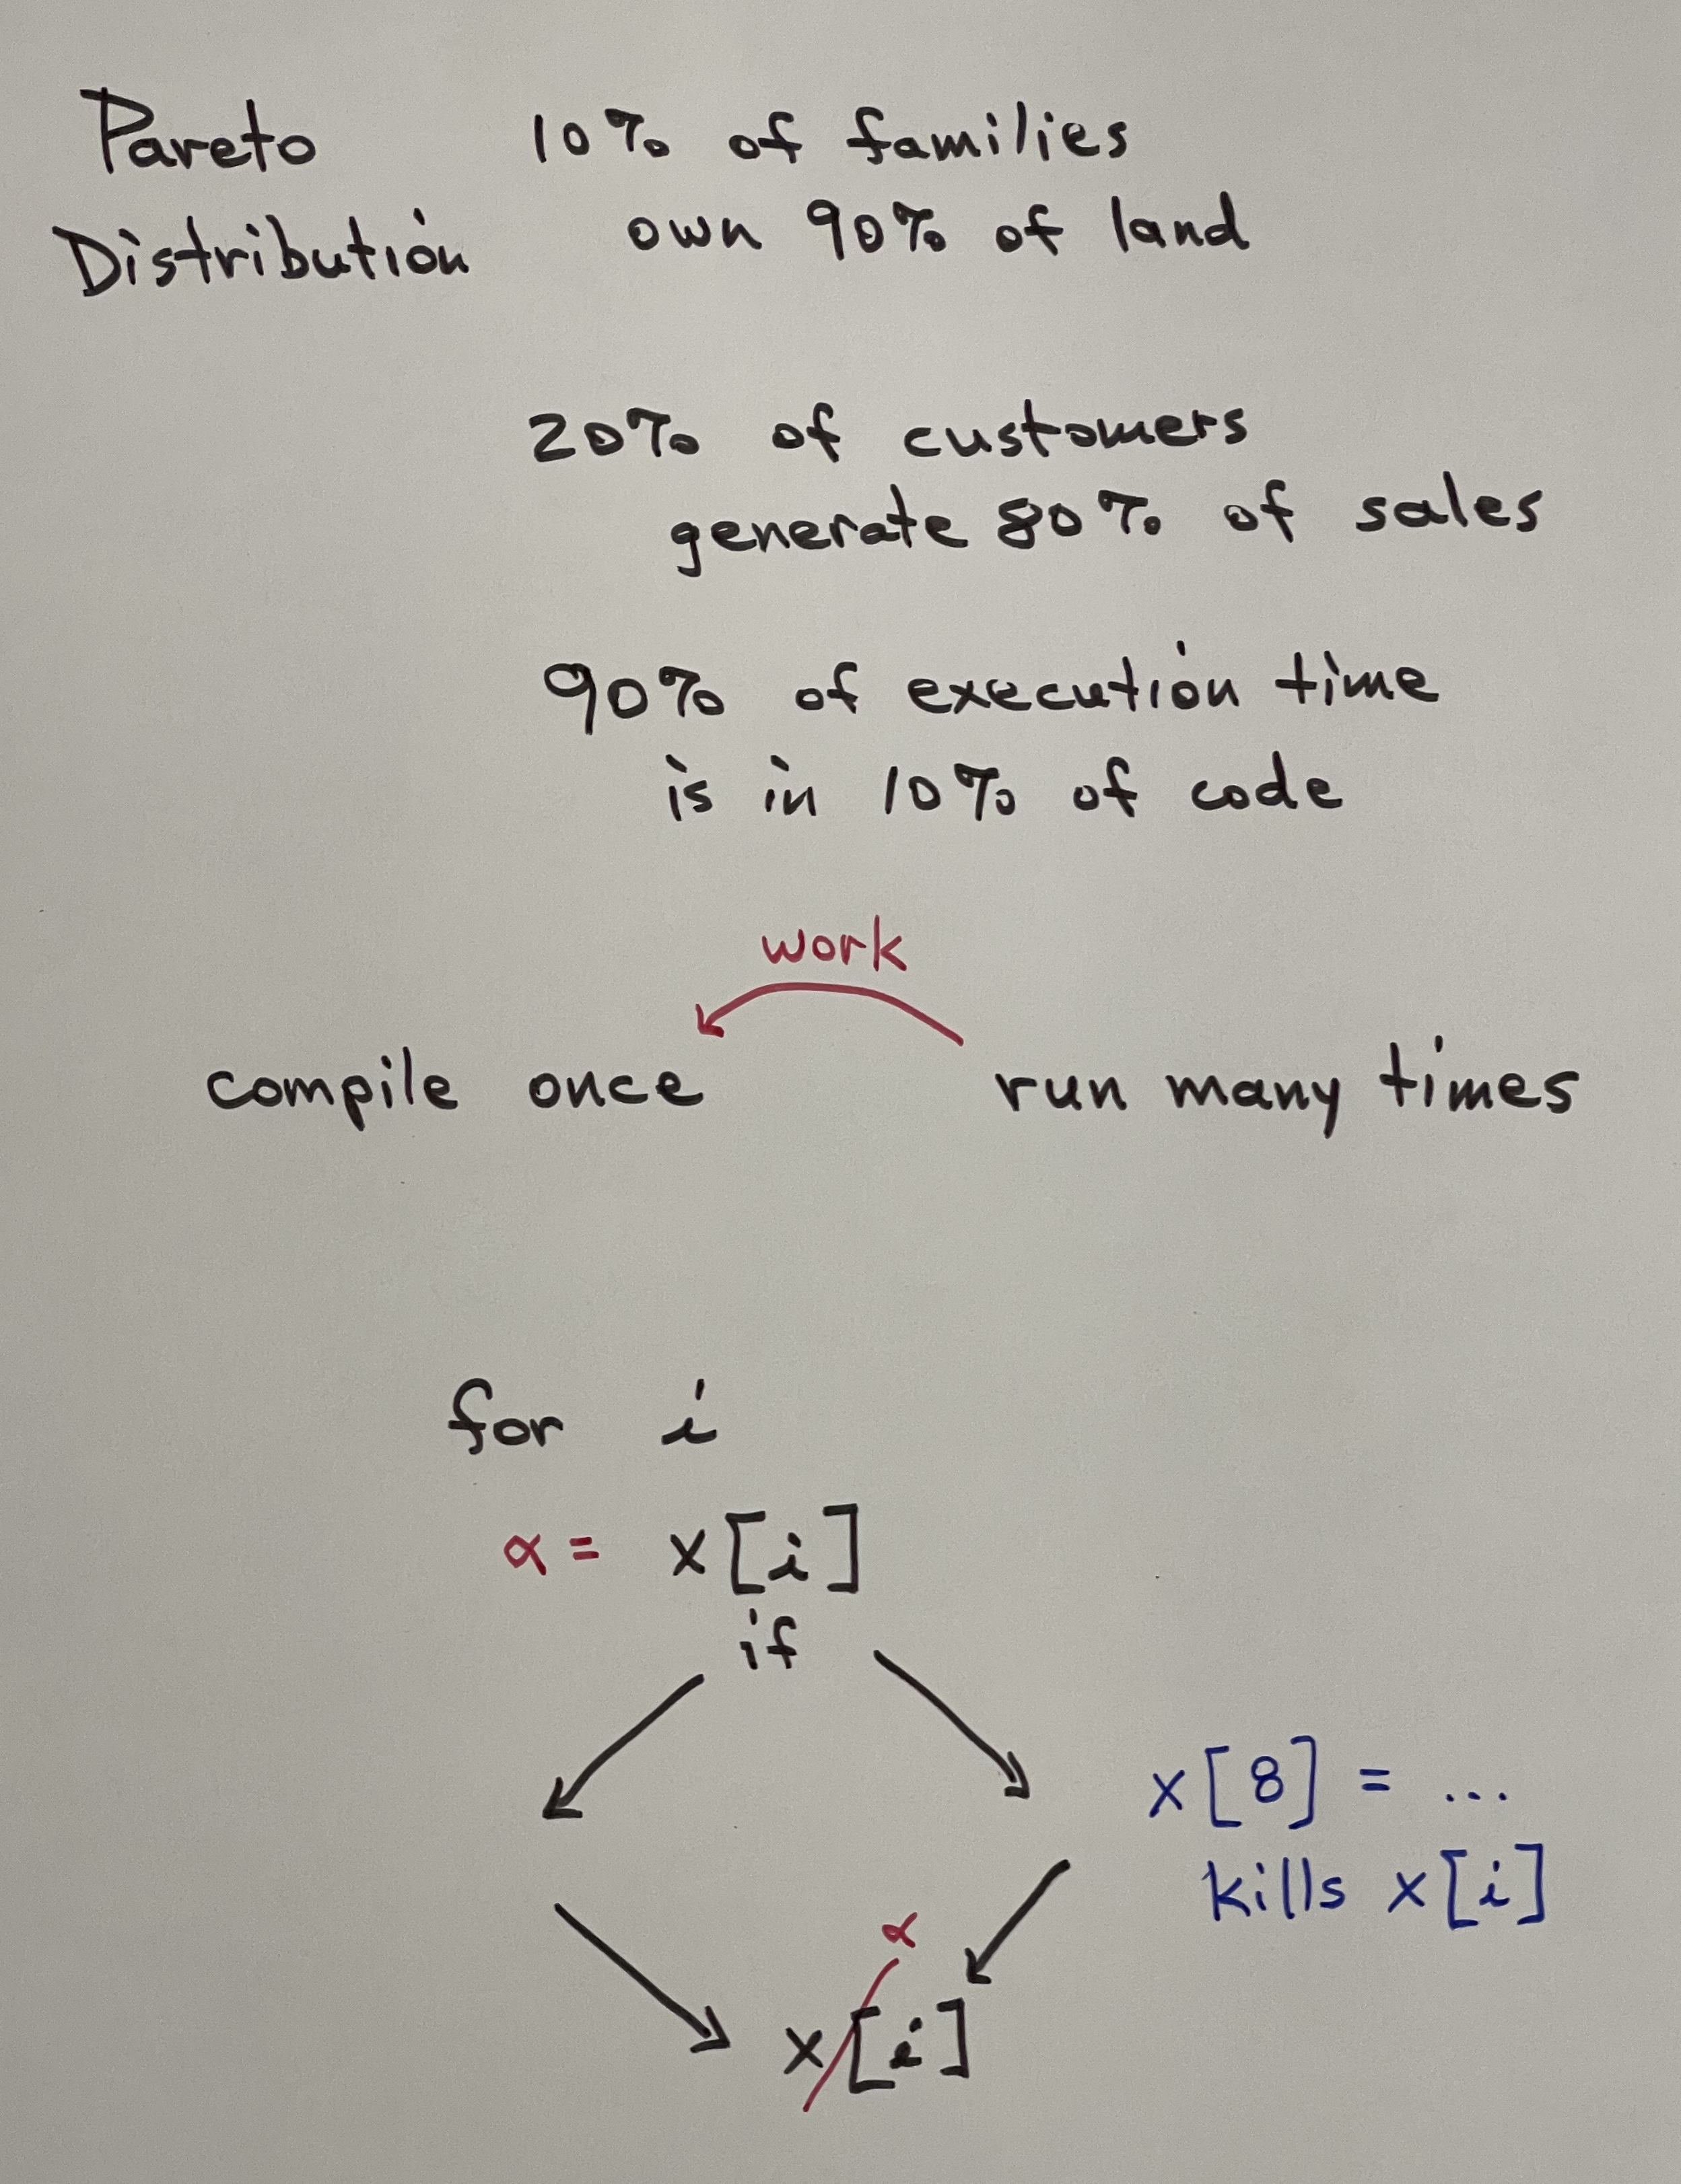 Pareto
Distribution
10% of families
own 90% of land
20% of customers
generate 80% of sales
90% of execution time
is in 10% of code
work
compile once
run many times
for i
α = x[i]
if
x[8] = ...
kills x[i]
α
x[i]